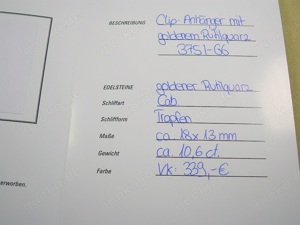 BESCHREIBUNG Clip-Anhänger mit
goldenem Rutilquarz
3751-GG
EDELSTEINE goldener Rutilquarz
Schliffart Cab
Schliffform Tropfen
Maße ca. 18 x 13 mm
Gewicht ca. 10,6 ct.
Farbe Vk: 339,-€
erworben.